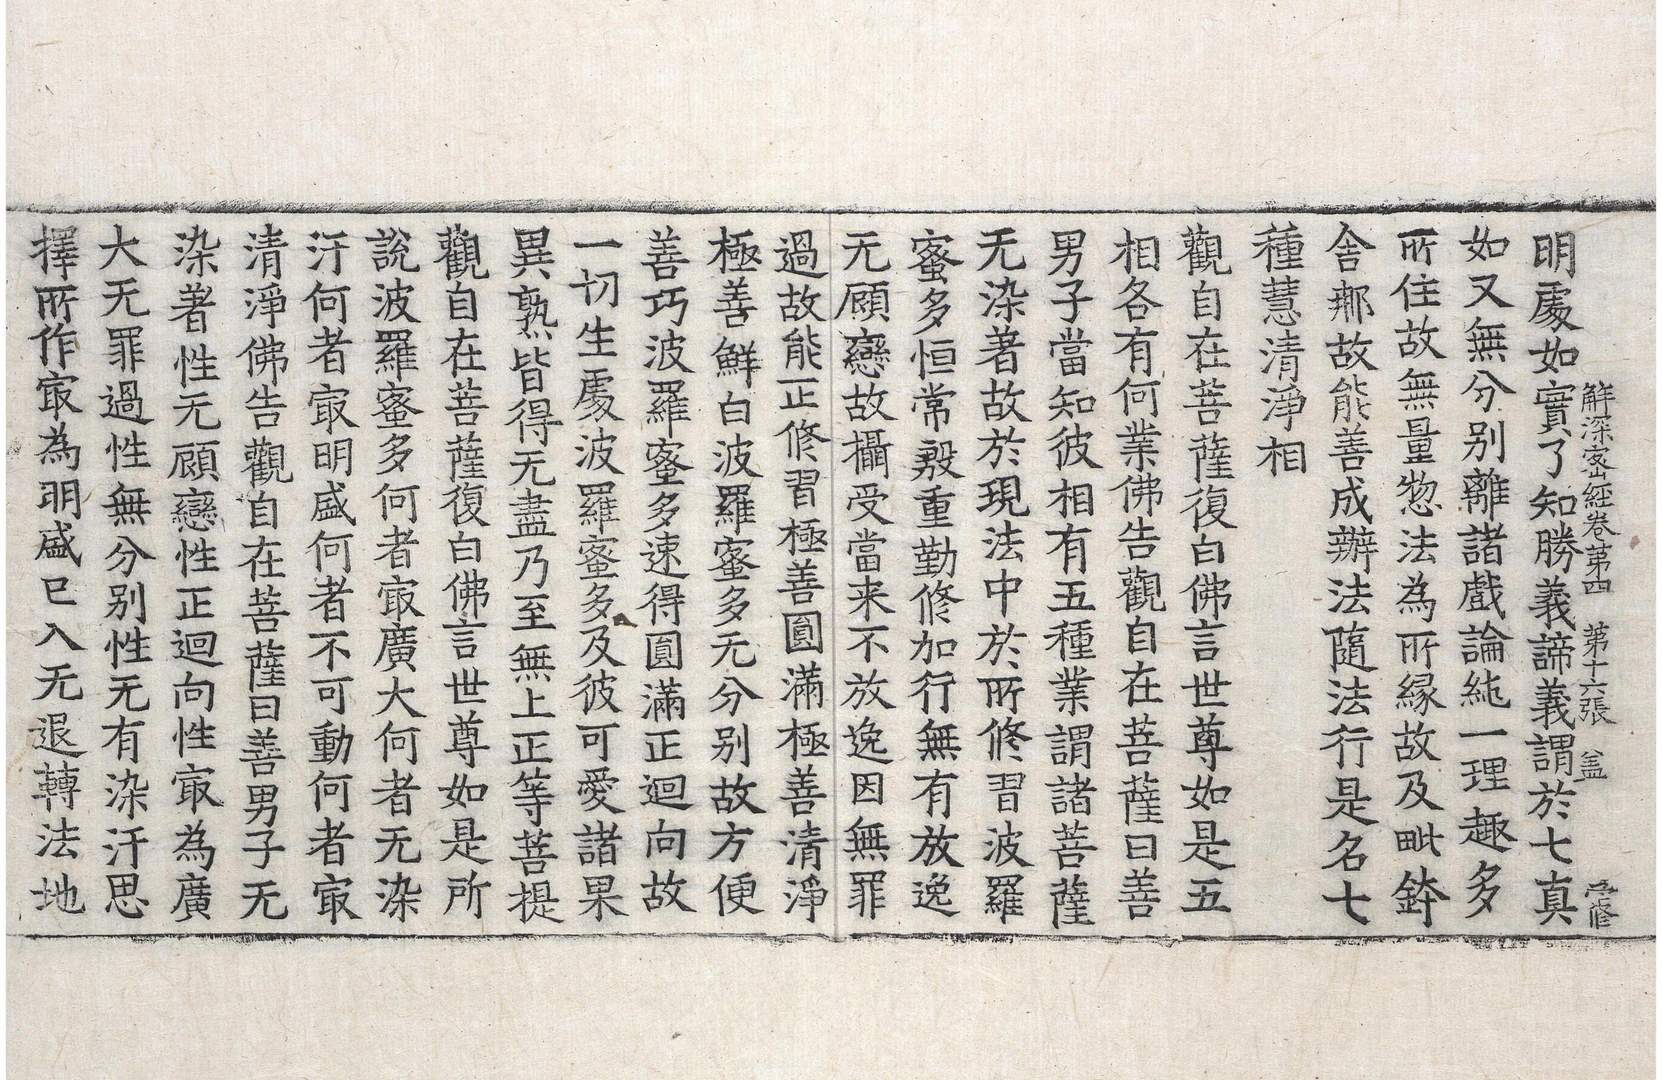 解深密經卷第四　第十六張　盖
明處如實了知勝義諦義謂於七真
如又無分別離諸戲論純一理趣多
所住故無量惣法為所緣故及毗鉢
舍那故能善成辦法隨法行是名七
種慧清淨相
觀自在菩薩復白佛言世尊如是五
相各有何業佛告觀自在菩薩曰善
男子當知彼相有五種業謂諸菩薩
无染著故於現法中於所修習波羅
蜜多恒常殷重勤修加行無有放逸
无顧戀故攝受當来不放逸因無罪
過故能正修習極善圓滿極善清淨
極善鮮白波羅蜜多无分別故方便
善巧波羅蜜多速得圓滿正迴向故
一切生處波羅蜜多及彼可愛諸果
異熟皆得无盡乃至無上正等菩提
觀自在菩薩復白佛言世尊如是所
說波羅蜜多何者㝡廣大何者无染
汙何者㝡明盛何者不可動何者㝡
清淨佛告觀自在菩薩曰善男子无
染著性无顧戀性正迴向性㝡為廣
大无罪過性無分別性无有染汙思
擇所作㝡為明盛已入无退轉法地